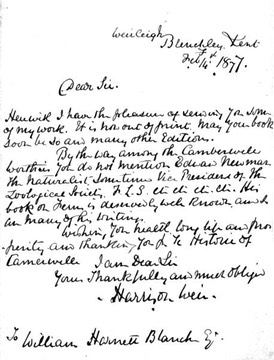 Weirleigh
Brenchley, Kent
Feb 14th 1877.
Dear Sir.
Herewith I have the pleasure of sending you some
of my work. It is now out of print. May your book
soon be so and many other Editions.
By the way, among the Camberwell
worthies you do not mention Edward Newman
the Naturalist, sometime Vice President of the
Zoological Society, F.L.S. etc etc etc etc. His
book on Ferns is deservedly well known and so
are many of his writings.
Wishing you health, long life and pros-
perity and thanking you for Ye Historie of
Camerwell
I am Dear Sir
Yours Thankfully and much obliged
Harrison Weir.
To William Harnett Blanch Esq.